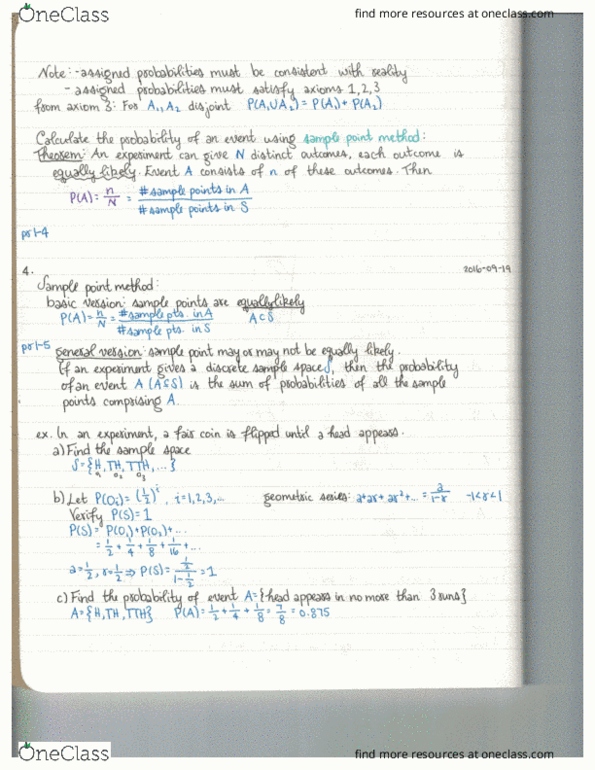 OneClass
find more resources at oneclass.com
Note: -assigned probabilities must be consistent with reality
- assigned probabilities must satisfy axioms 1,2,3
from axiom 3: For A₁, A₂ disjoint P(A₁∪A₂) = P(A₁) + P(A₂)
Calculate the probability of an event using sample point method:
Theorem: An experiment can give N distinct outcomes, each outcome is
equally likely. Event A consists of n of these outcomes. Then
P(A) = n/N = # sample points in A / # sample points in S
4.
2016-09-19
Sample point method:
basic version: sample points are equally likely
P(A) = n/N = # sample pts. in A / # sample pts. in S A⊂S
general version: sample point may or may not be equally likely.
If an experiment gives a discrete sample space S, then the probability
of an event A (A⊆S) is the sum of probabilities of all the sample
points comprising A.
ex. In an experiment, a fair coin is flipped until a head appears.
a) Find the sample space
S = {H, TH, TTH, ...}
o₁ o₂ o₃
b) Let P(Oᵢ) = (½)ⁱ, i=1,2,3,... geometric series: a+ar+ar²+... = a/1-r -1<r<1
Verify P(S)=1
P(S) = P(O₁)+P(O₂)+...
= 1/2 + 1/4 + 1/8 + 1/16 + ...
a=1/2, r=1/2 ⇒ P(S) = 1/2 / 1-1/2 = 1
c) Find the probability of event A={head appears in no more than 3 runs}
A={H, TH, TTH} P(A) = 1/2 + 1/4 + 1/8 = 7/8 = 0.875
OneClass
find more resources at oneclass.com